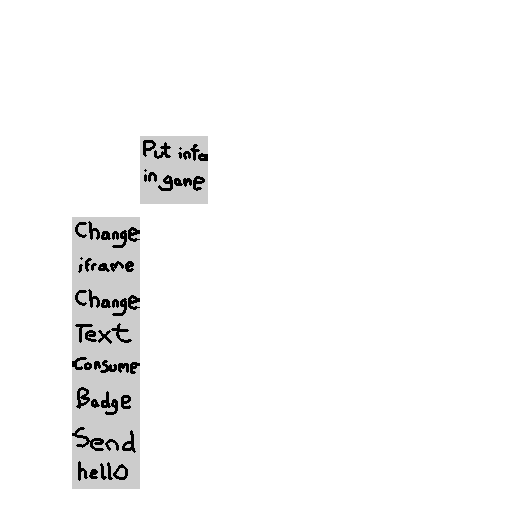 Put info
in game
Change
iframe
Change
Text
Consume
Badge
Send
hello